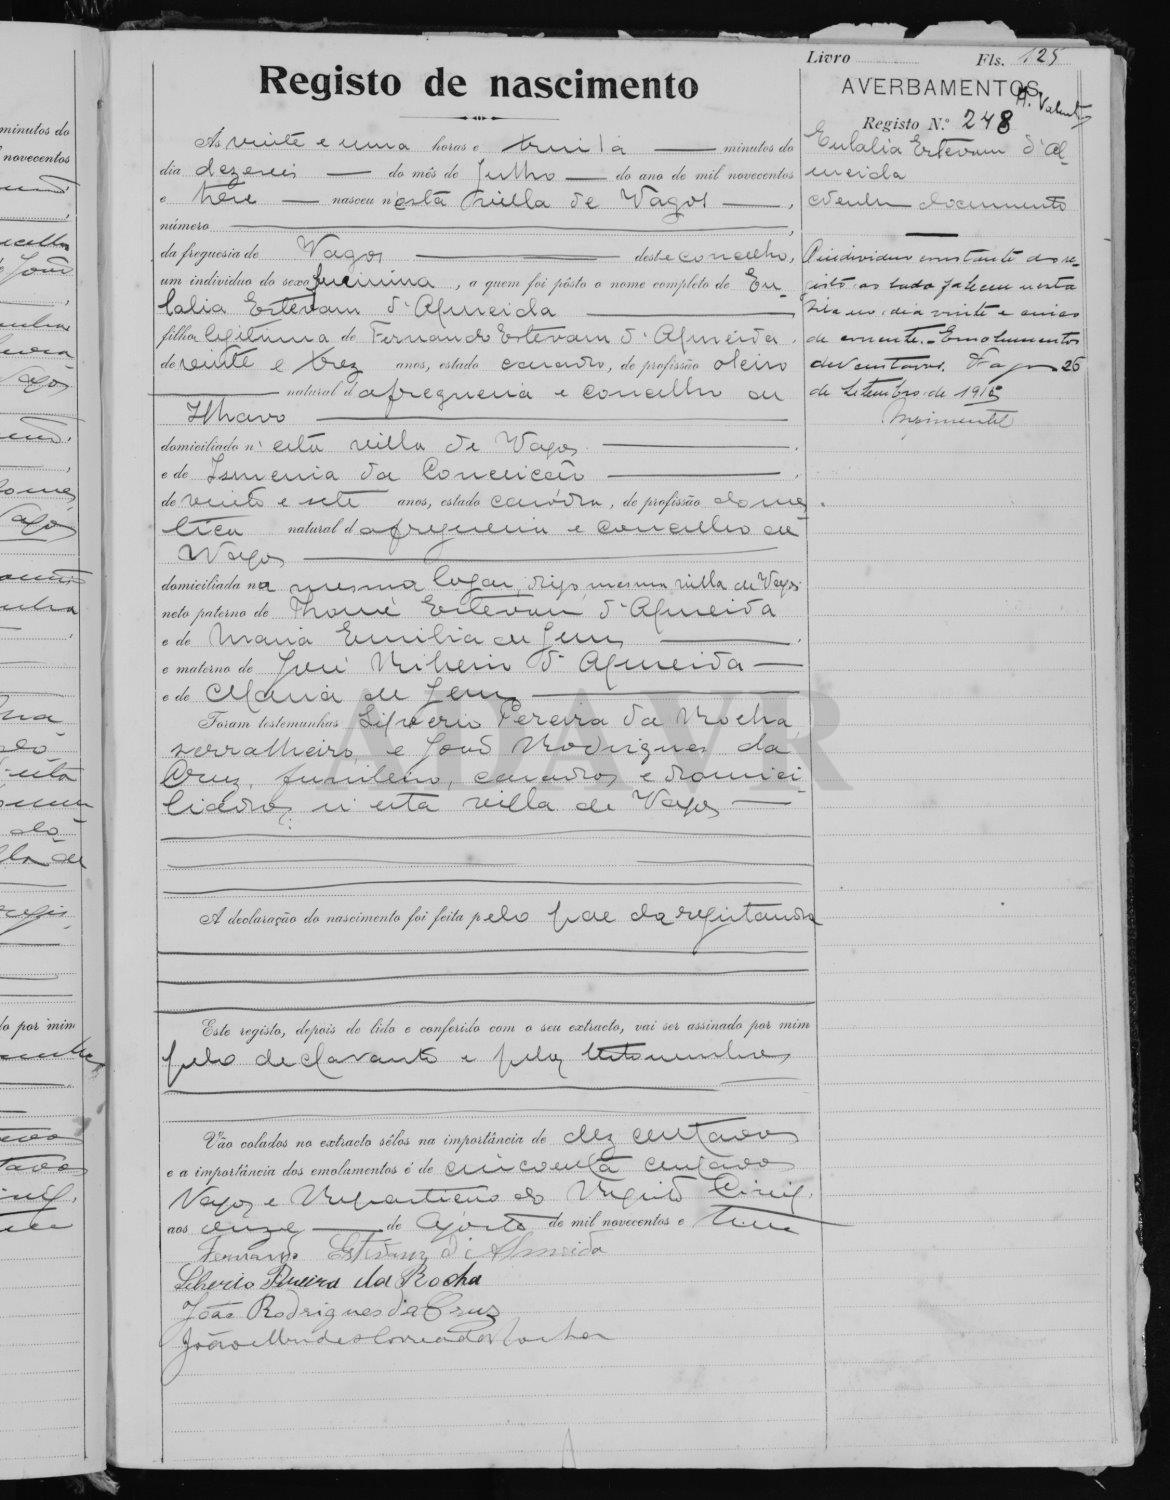 Livro Fls. 125
Registo de nascimento
AVERBAMENTOS
Registo N.º 248
Eulalia Estevam d'Al-
meida
documento
O individuo constante do re-
gisto ao lado faleceu nesta
vila no dia vinte e cinco
do corrente. Emolumentos
dez centavos. Vagos 26
de Setembro de 1915
Às vinte e uma horas e trinta minutos do
dia dezeseis do mês de Julho do ano de mil novecentos
e treze nasceu n'esta villa de Vagos,
número
da freguesia de Vagos deste concelho,
um individuo do sexo feminino, a quem foi pôsto o nome completo de Eu-
lalia Estevam d'Almeida
filha legitima de Fernando Estevam d'Almeida,
de vinte e trez anos, estado casado, de profissão oleiro
natural da freguesia e concelho de
Ilhavo
domiciliado n'esta villa de Vagos
e de Ismenia da Conceição
de vinte e sete anos, estado casada, de profissão domes-
tica natural da freguesia e concelho de
Vagos
domiciliada na mesma logar, digo, mesma villa de Vagos
neto paterno de Thomé Estevam d'Almeida
e de Maria Emilia de Jesus
e materno de José Ribeiro d'Almeida
e de Maria de Jesus
Foram testemunhas Silverio Pereira da Rocha
serralheiro, e João Rodrigues da
Cruz, funileiro, casados e domici-
liados n'esta villa de Vagos
A declaração do nascimento foi feita pelo pae da registanda
Este registo, depois de lido e conferido com o seu extracto, vai ser assinado por mim
pelo declarante e pelas testemunhas
Vão colados no extracto sêlos na importância de dez centavos
e a importância dos emolumentos é de cincoenta centavos
Vagos e Repartição do Registo Civil,
aos onze de Agosto de mil novecentos e treze
Fernando Estevam d'Almeida
Silverio Pereira da Rocha
João Rodrigues da Cruz
João Mendes Correia da Rocha
ADAVR